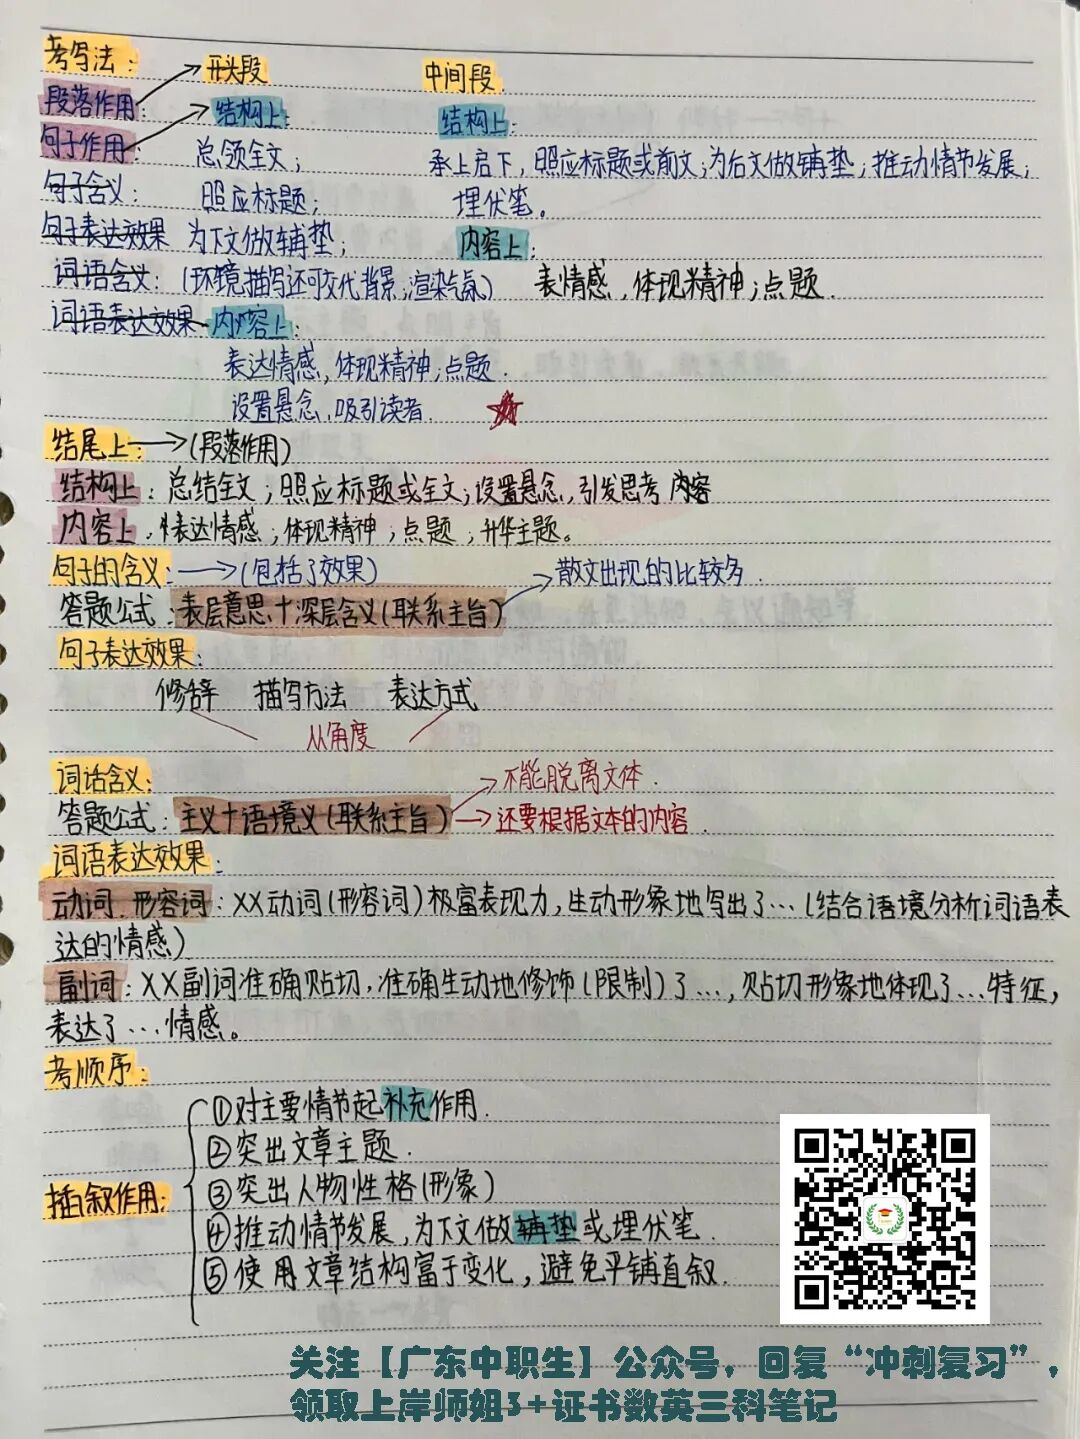 考写法：
段落作用： 开头段 中间段
句子作用： 结构上： 结构上：
总领全文； 承上启下，照应标题或前文；为后文做铺垫；推动情节发展；
句子含义： 照应标题； 埋伏笔。
句子表达效果 为下文做铺垫； 内容上：
词语含义： （环境描写还可交代背景；渲染气氛） 表情感，体现精神；点题．
词语表达效果 内容上：
表达情感，体现精神；点题．
设置悬念，吸引读者．
结尾上：→（段落作用）
结构上：总结全文；照应标题或全文；设置悬念，引发思考 内容
内容上，表达情感；体现精神；点题，升华主题。
句子的含义：→（包括了效果） 散文出现的比较多．
答题公式：表层意思＋深层含义（联系主旨）
句子表达效果：
修辞 描写方法 表达方式
从角度
词话含义： 不能脱离文体．
答题公式：主义＋语境义（联系主旨）→还要根据文本的内容．
词语表达效果：
动词．形容词：XX动词（形容词）极富表现力，生动形象地写出了…（结合语境分析词语表
达的情感）
副词：XX副词准确贴切，准确生动地修饰（限制）了…，贴切形象地体现了…特征，
表达了…情感。
考顺序：
①对主要情节起补充作用．
②突出文章主题．
插叙作用： ③突出人物性格（形象）
④推动情节发展，为下文做铺垫或埋伏笔．
⑤使用文章结构富于变化，避免平铺直叙．
关注【广东中职生】公众号，回复“冲刺复习”，
领取上岸师姐3+证书数英三科笔记